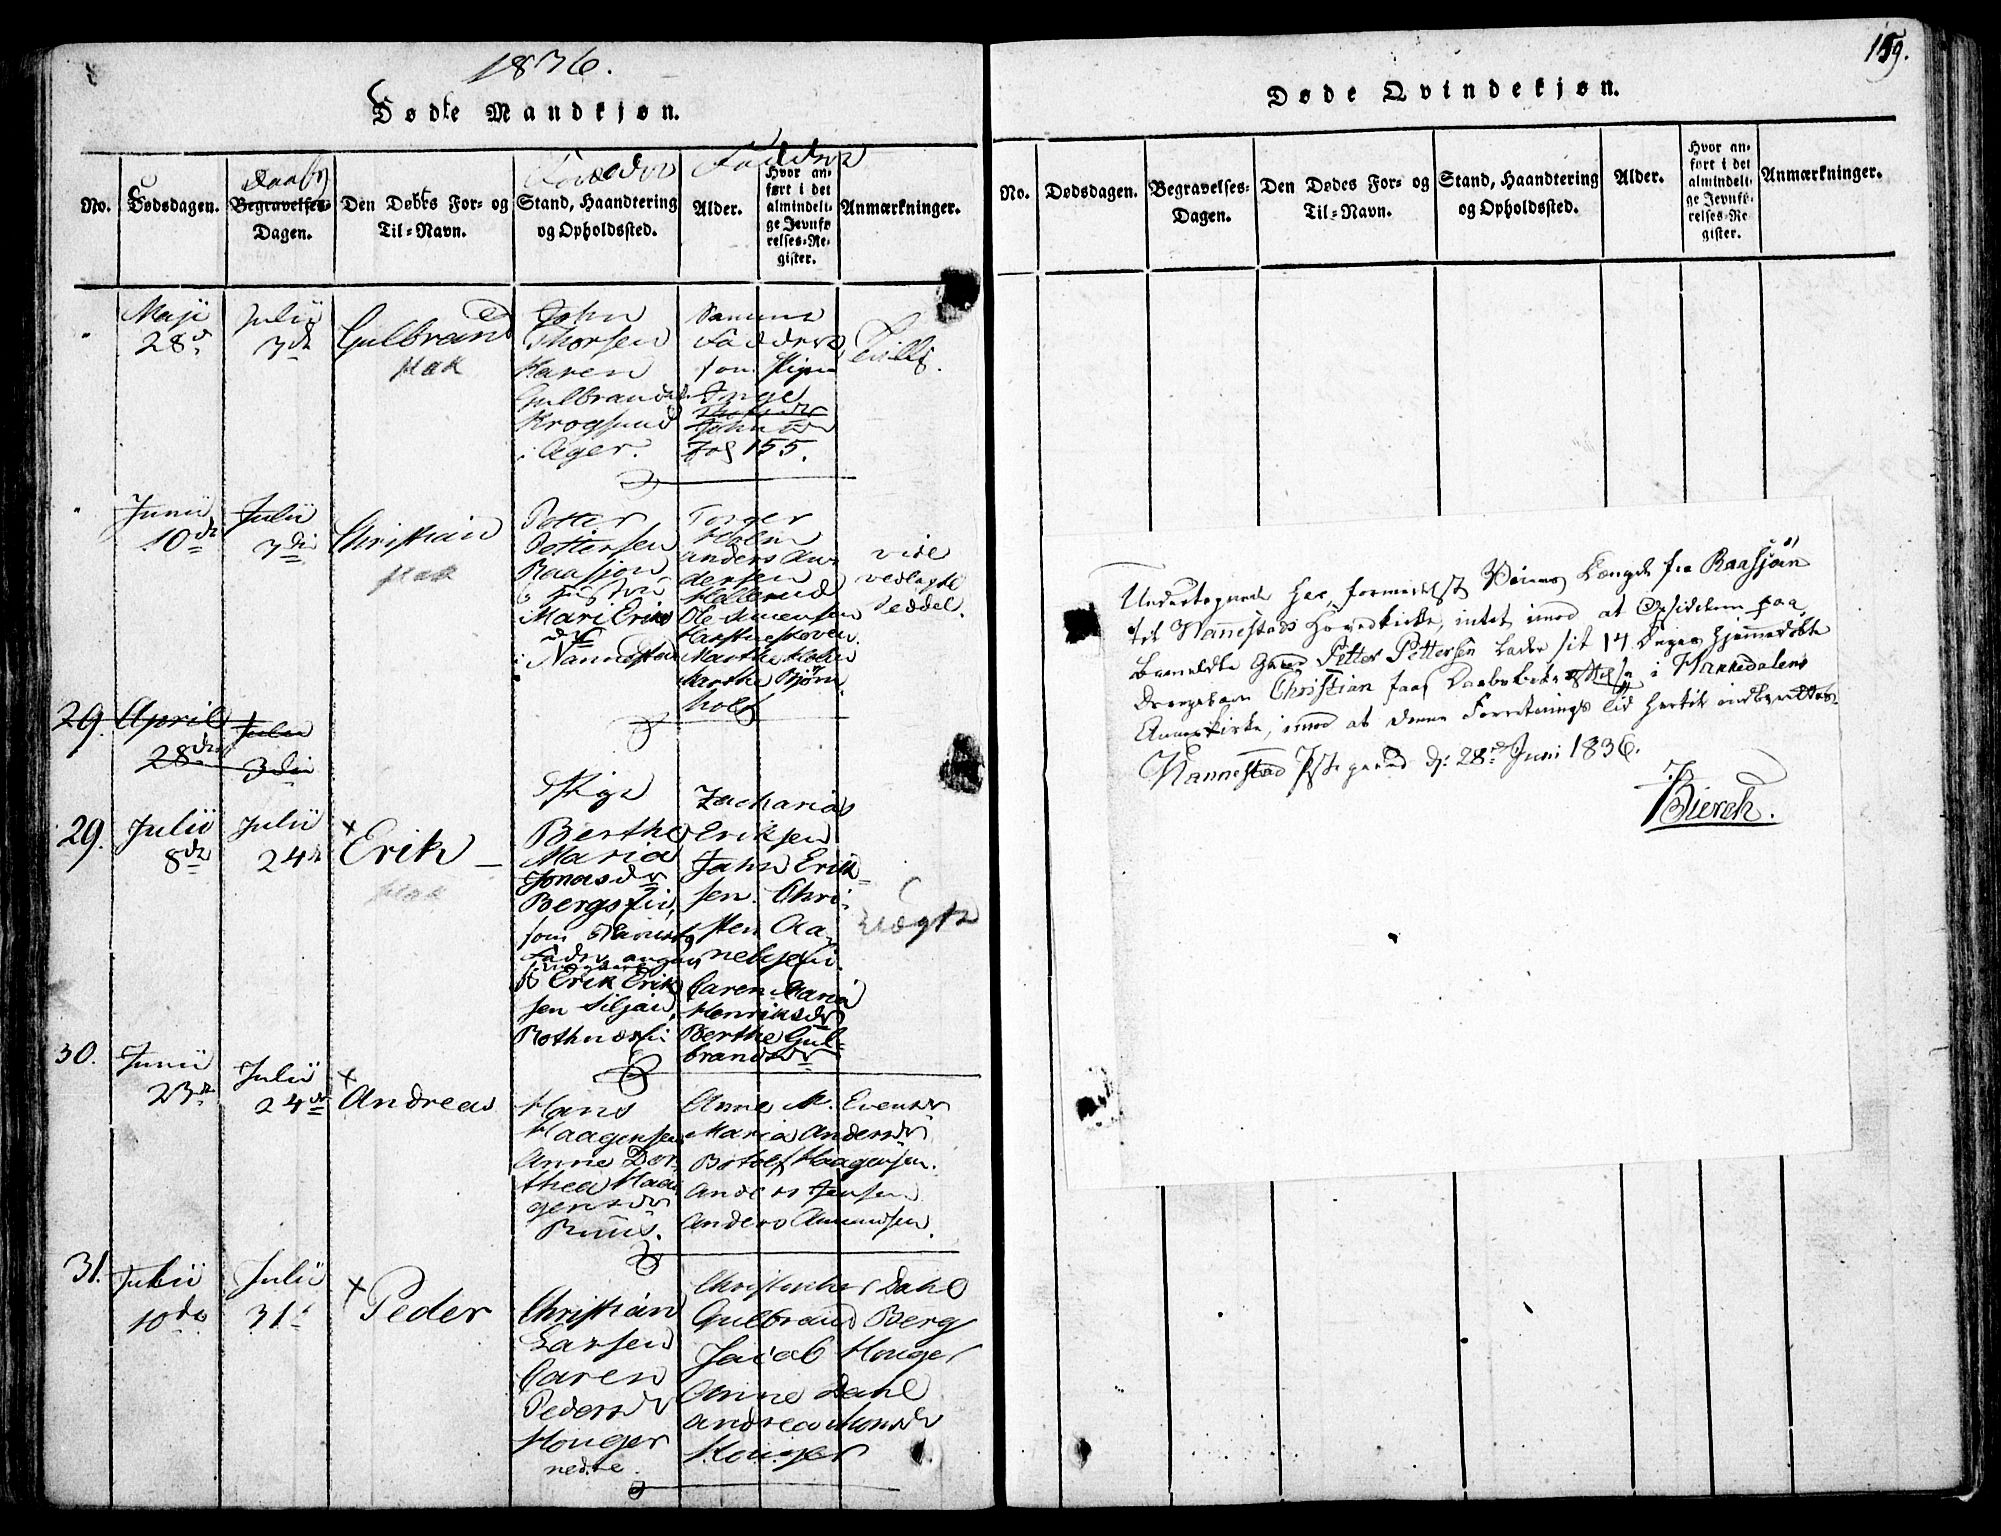 1836.
Døde Mandkjøn.
Daab
Forældre
Faddere
No.
Dødsdagen.
Begravelses-
Dagen.
Den Dødes For- og
Til-Navn.
Stand, Haandtering
og Opholdssted.
Alder.
Hvor an-
ført i det
almindeli-
ge Jevnfø-
relses-Re-
gister.
Anmærkninger.
Maji
28
Julii
3d
Gulbrand
John
Thorsen
Karen
Gulbrandsd.
Krogsund
i Ager.
Samme
Faddere
som Pigen
Inge
Johnsdr
Fol 155.
Tvilli
Junii
10de
Julii
3die
Christian
Petter
Pettersen
Raasjøn
Mari Eriks
dr
i Nannestad
Holm
Anders An-
dersen
Ole Simensen
Marthe Holm
Marthe Bjørn-
holt
vide
vedlagte
Seddel.
29.
April
28de
Julii
3die
29.
Julii
8de
Julii
24d
Erik
Pige
Berthe
Maria
Jonasdr
Bergsjøe
som
Erik Erik
sen
Zacharias
Eriksen
John Erik-
sen. Chri-
sten Aa-
Caren Maria
Henriksdr
Berthe Gul-
brandsdr
Uægte
30.
Junii
23d
Julii
24de
Andreas
Hans
Haagensen
Anne Dor-
thea Haa
gensdr
Ruus.
Anne M. Evensdr
Maria Andersdr
Botolf Haagensen.
Anders Jensen
Anders Amundsen.
31.
Julii
10de
Julii
31
Peder
Christian
Larsen
Caren
Pedersdr
Houger
nedre.
Christopher Dahl
Gulbrand Berg
Jacob Houger
Anne Dahl
Andrea Monsdr
Houger
159.
Døde Qvindekjøn.
No.
Dødsdagen.
Begravelses-
Dagen.
Den Dødes For- og
Til-Navn.
Stand, Haandtering
og Opholdssted.
Alder.
Hvor an-
ført i det
almindeli-
ge Jevnfø-
relses-Re-
gister.
Anmærkninger.
Undertegnede har, formedelst Veiens Længde fra Raasjøen
til Nannestads Hovedkirke, intet imod at Opsidderen paa
bemeldte Gaard Petter Pettersen lader sit 14 Dage hjemmedøbte
Drengebarn Christian faae Daabsbekræftelse i Nannedalens
Annexkirke, imod at denne Forretning i Tid hertil indberettes.
Nannestad Præstegaard d. 28de Juni 1836.
Bierch.